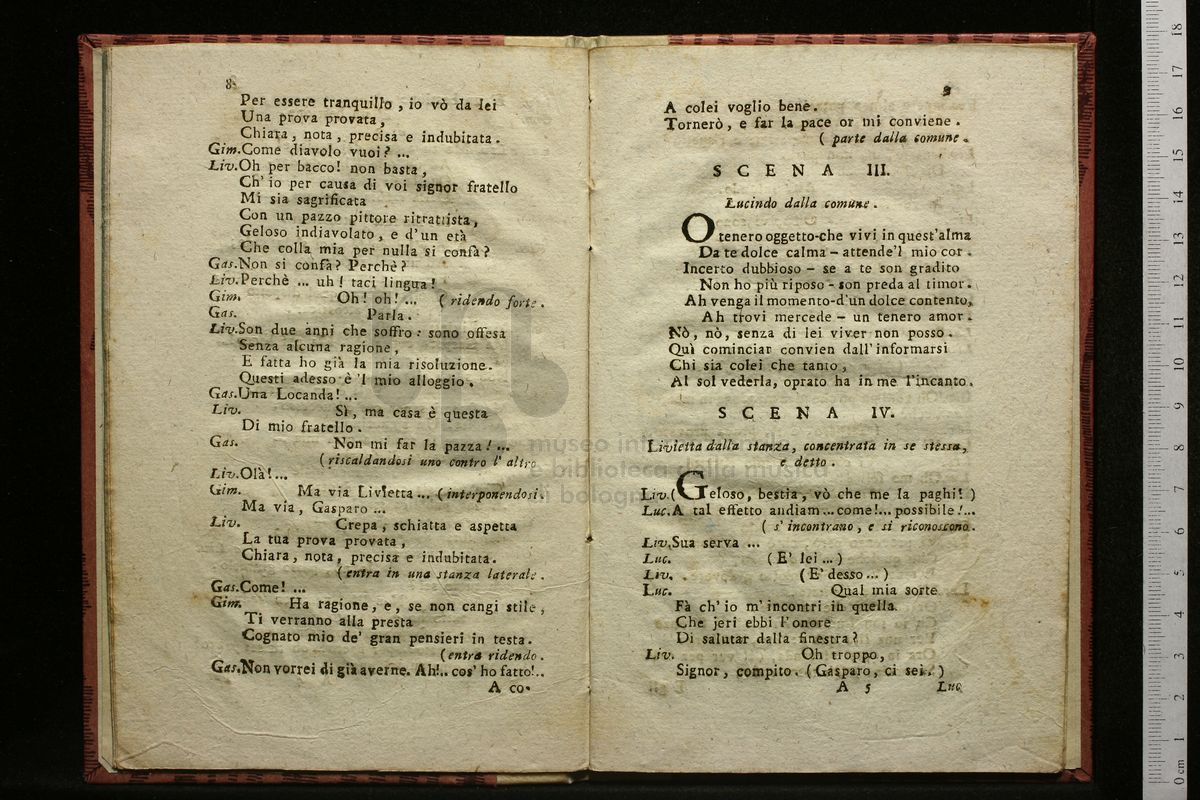 8
Per essere tranquillo, io vò da lei
Una prova provata,
Chiara, nota, precisa e indubitata.
Gim. Come diavolo vuoi? ...
Liv. Oh per bacco! non basta,
Ch' io per causa di voi signor fratello
Mi sia sagrificata
Con un pazzo pittore ritrattista,
Geloso indiavolato, e d'un età
Che colla mia per nulla si confà?
Gas. Non si confà? Perchè?
Liv. Perchè ... uh! taci lingua!
Gim. Oh! oh! ... (ridendo forte.
Gas. Parla.
Liv. Son due anni che soffro: sono offesa
Senza alcuna ragione,
E fatta ho già la mia risoluzione.
Questi adesso è 'l mio alloggio.
Gas. Una Locanda! ...
Liv. Sì, ma casa è questa
Di mio fratello.
Gas. Non mi far la pazza! ...
(riscaldandosi uno contro l' altro
Liv. Olà! ...
Gim. Ma via Livietta ... (interponendosi.
Ma via, Gasparo ...
Liv. Crepa, schiatta e aspetta
La tua prova provata,
Chiara, nota, precisa e indubitata.
(entra in una stanza laterale.
Gas. Come! ...
Gim. Ha ragione, e, se non cangi stile,
Ti verranno alla presta
Cognato mio de' gran pensieri in testa.
(entra ridendo.
Gas. Non vorrei di già averne. Ah!.. cos' ho fatto!..
A co-
9
A colei voglio bene.
Tornerò, e far la pace or mi conviene.
(parte dalla comune.
SCENA III.
Lucindo dalla comune.
O tenero oggetto-che vivi in quest'alma
Da te dolce calma - attende'l mio cor.
Incerto dubbioso - se a te son gradito
Non ho più riposo - son preda al timor.
Ah venga il momento-d'un dolce contento,
Ah trovi mercede - un tenero amor.
Nò, nò, senza di lei viver non posso.
Quì cominciar convien dall' informarsi
Chi sia colei che tanto,
Al sol vederla, oprato ha in me l'incanto.
SCENA IV.
Livietta dalla stanza, concentrata in se stessa,
e detto.
Liv. (Geloso, bestia, vò che me la paghi! )
Luc. A tal effetto andiam ... come!... possibile!...
(s' incontrano, e si riconoscono.
Liv. Sua serva ...
Luc. (E' lei ... )
Liv. (E' desso ... )
Luc. Qual mia sorte
Fà ch' io m' incontri in quella
Che jeri ebbi l'onore
Di salutar dalla finestra?
Liv. Oh troppo,
Signor, compito. (Gasparo, ci sei. )
A 5 Luc.
museo int
e biblioteca della musica
di bologna